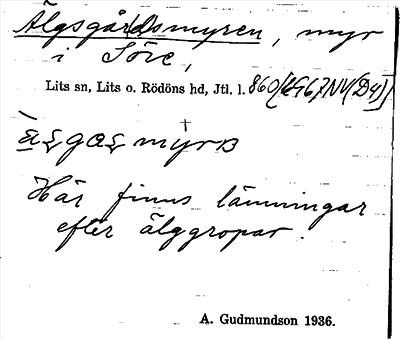 Älgsgårdsmyren, myr
i Söre,
Lits sn, Lits o. Rödöns hd, Jtl. l.
Här finns lämningar
efter älggropar.
A. Gudmundson 1936.